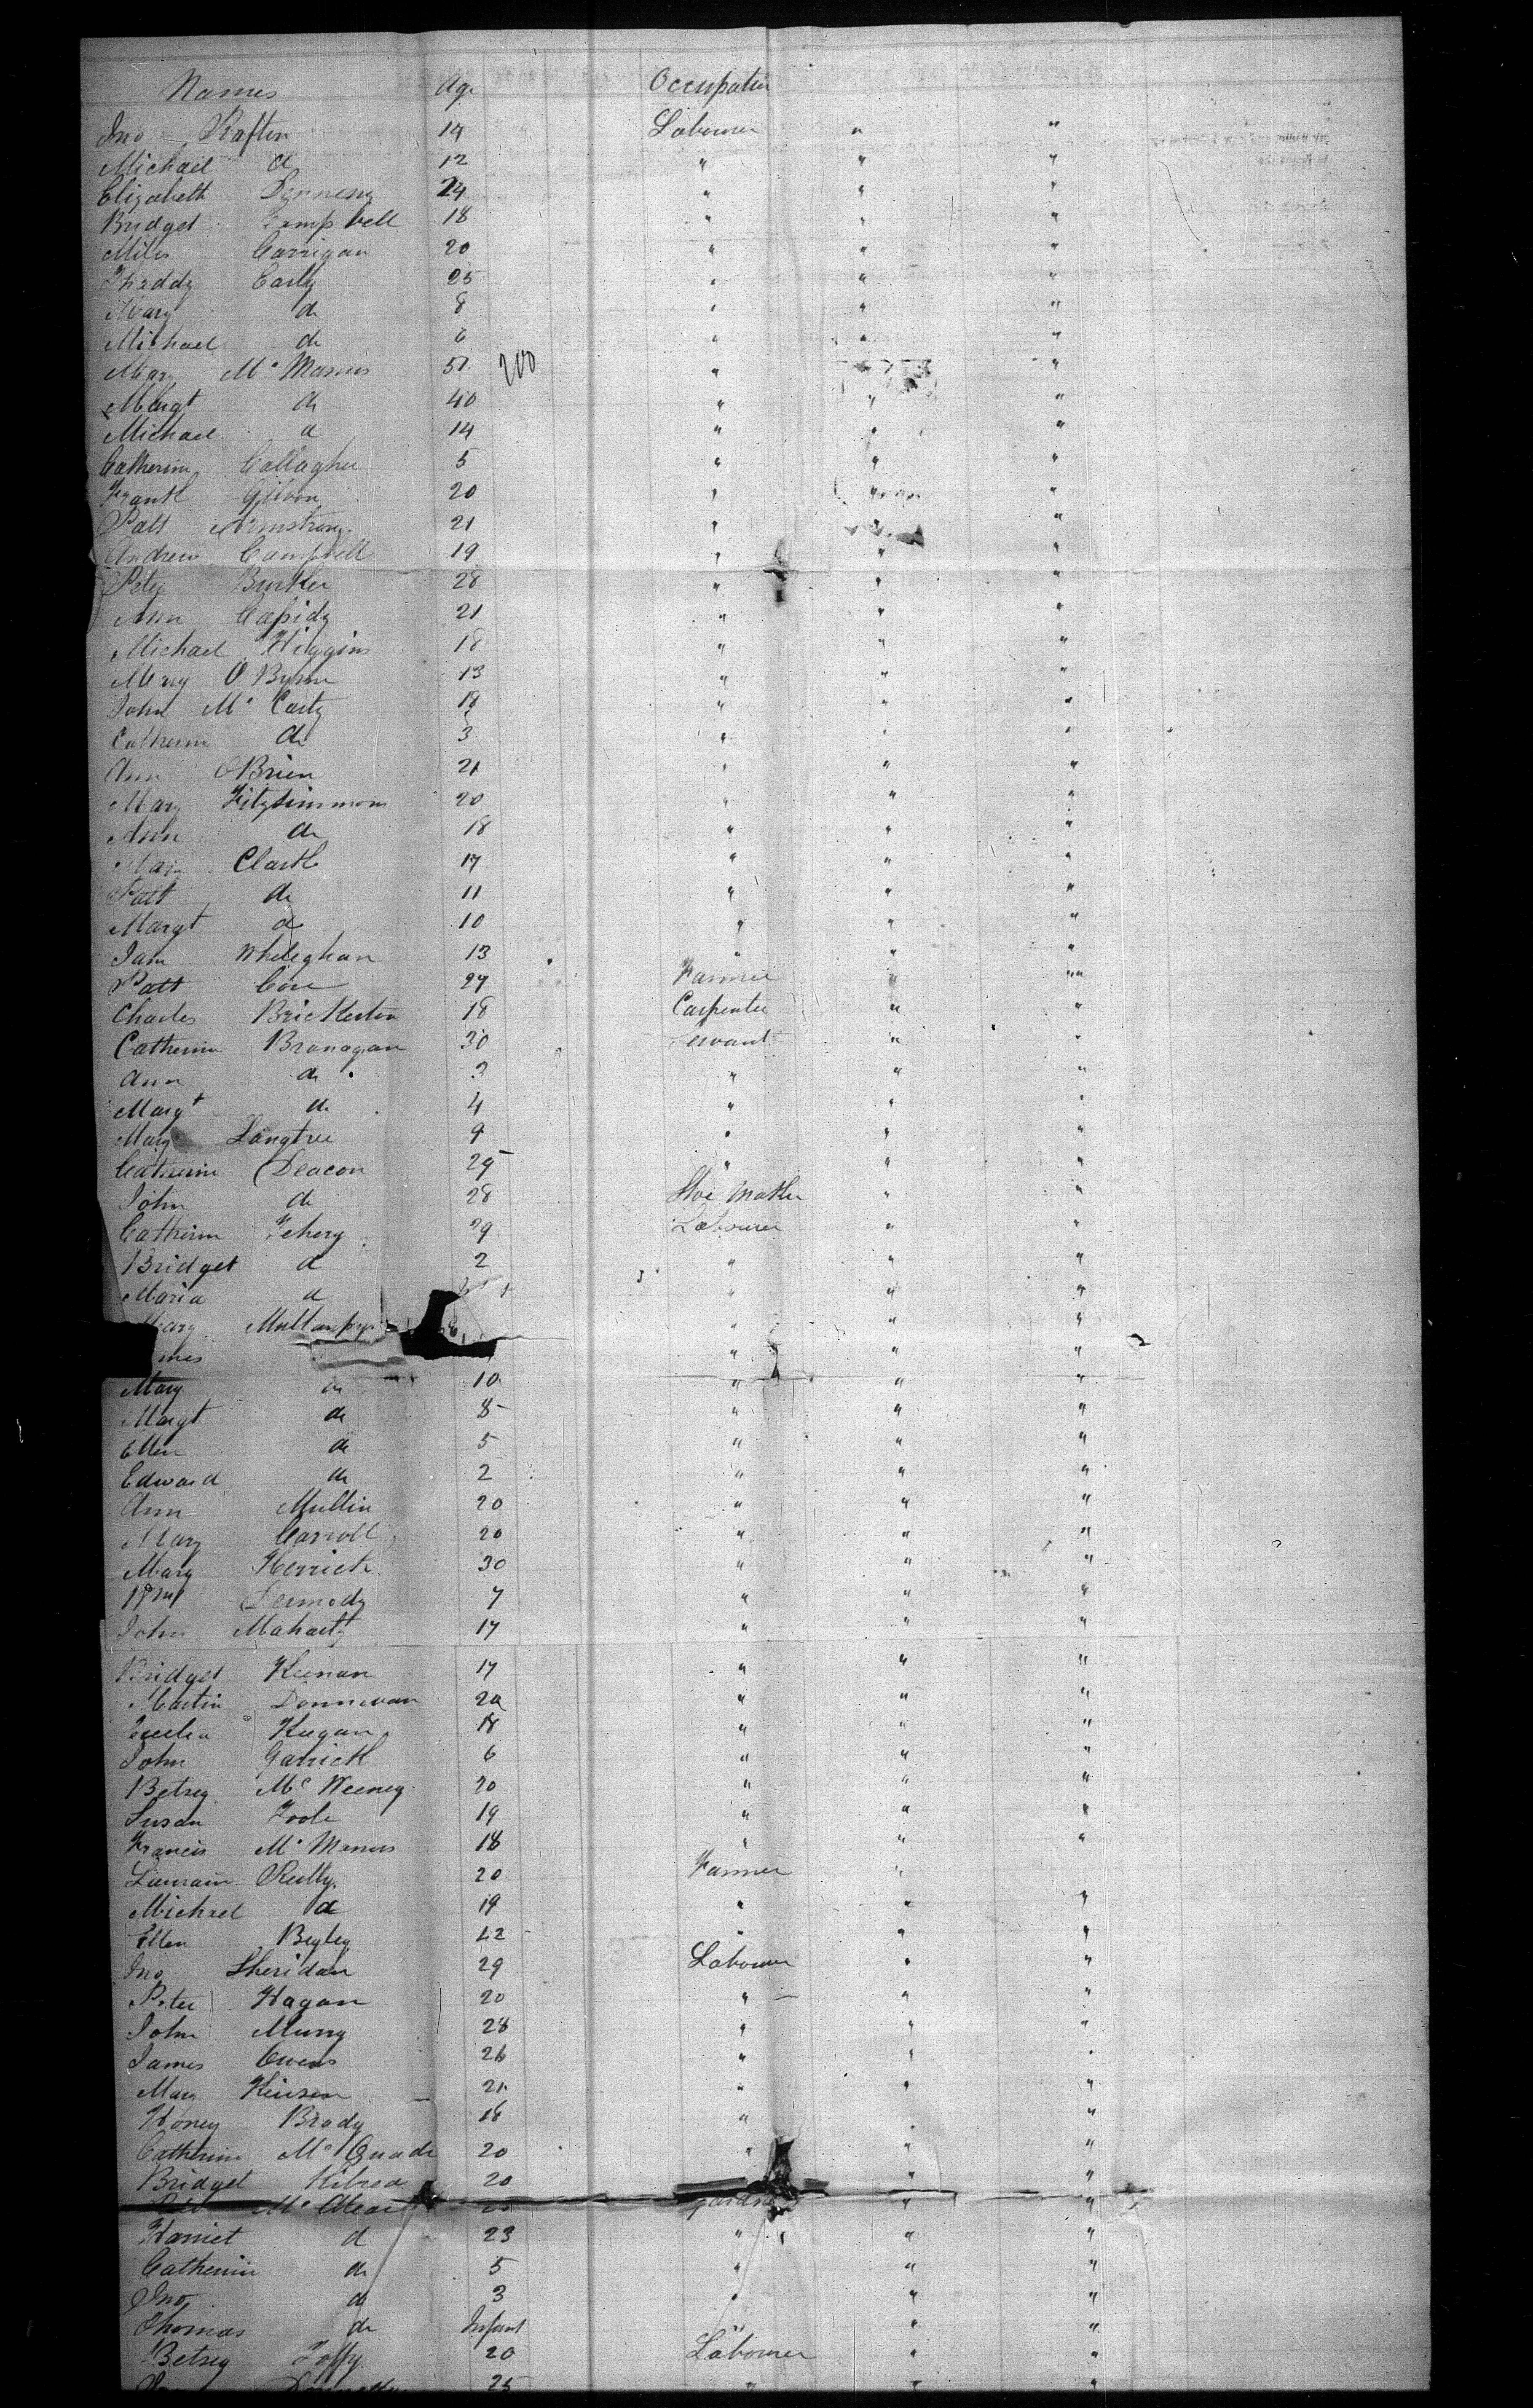 Names Age Occupation
Jno Rafter 14 Labourer " "
Michael do 12 " " "
Elizabeth 24 " " "
Bridget Campbell 18 " " "
Miles Carrigan 20 " " "
Theddy Early 25 " " "
Mary do 8 " " "
Michael do 6 " " "
Mary Mc Manus 51 200 " "
Margt do 40 " " "
Michael do 14 " " "
Catherine Gallagher 5 " " "
Frank Gibbon 20 " "
Patt Armstrong 21 " " "
Andrew Campbell 19 " " "
Peter Burke 28 " " "
Ann Casidy 21 " " "
Michael Higgins 18 " " "
Mary O Byrne 13 " " "
John Mc Carty " " "
Catherine do 3 " " "
Ann O Brien 21 " " "
Mary Fitzsimmons 20 " " "
Ann do 18 " " "
Mary Clark 17 " " "
Patt do 11 " " "
Margt do 10 " " "
Jam Wheleghan 13 " " "
Patt 27 Farmer " "
Charles Brickerton 18 Carpenter " "
Catherine Branagan 30 Servant " "
Ann do " " "
Margt do 4 " " "
Mary Langtree 9 " " "
Catherine Deacon 25 " " "
John do 28 Shoe Maker " "
Catherine 29 Labourer " "
Bridget do 2 " " "
Maria do " " "
Mary " " "
" " "
Mary do 10 " " "
Margt do 8 " " "
Ellen do 5 " " "
Edward do 2 " " "
Ann Mullin 20 " " "
Mary Carroll 20 " " "
Mary Herrick 30 " " "
Wm Dermody 7 " " "
John 17 " " "
Bridget Keenan 17 " " "
Martin Donnevan 20 " " "
Keegan 18 " " "
John Garrick 6 " " "
Betsey Mc Weeney 20 " " "
Susan Toole 19 " " "
Francis Mc Manus 18 " " "
Reilly 20 Farmer "
Michael do 19 " " "
Ellen Begley 42 " " "
Jno Sheridan 29 Labourer " "
Peter Hagan 20 " " "
John 28 " " "
James Owens 26 " " "
Mary 21 " " "
Honey Brady 18 " " "
Catherine Mc Quade 20 " " "
Bridget 20 " "
" "
Harriet do 23 " " "
Catherine do 5 " " "
Jno do 3 " " "
Thomas do Infant " " "
Betsey 20 Labourer " "
25 " " "